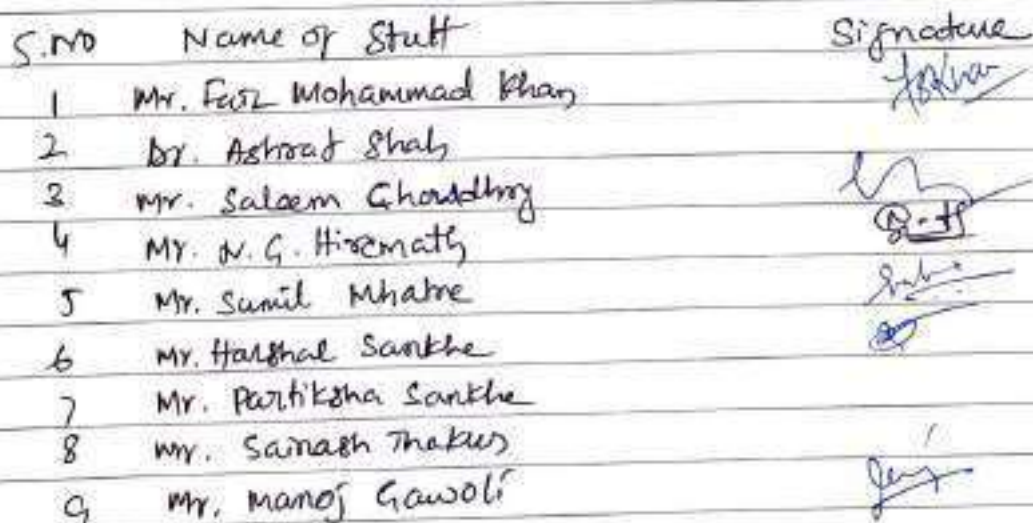 S.NO Name of Staff Signature
1 Mr. Faiz Mohammad Khan
2 Dr. Ashraf Shah
3 Mr. Saleem Chowdhry
4 Mr. N. G. Hiremath
5 Mr. Sunil Mhatre
6 Mr. Harshal Sankhe
7 Mr. Partiksha Sankhe
8 Mr. Sainash Thakur
9 Mr. Manoj Gawoli